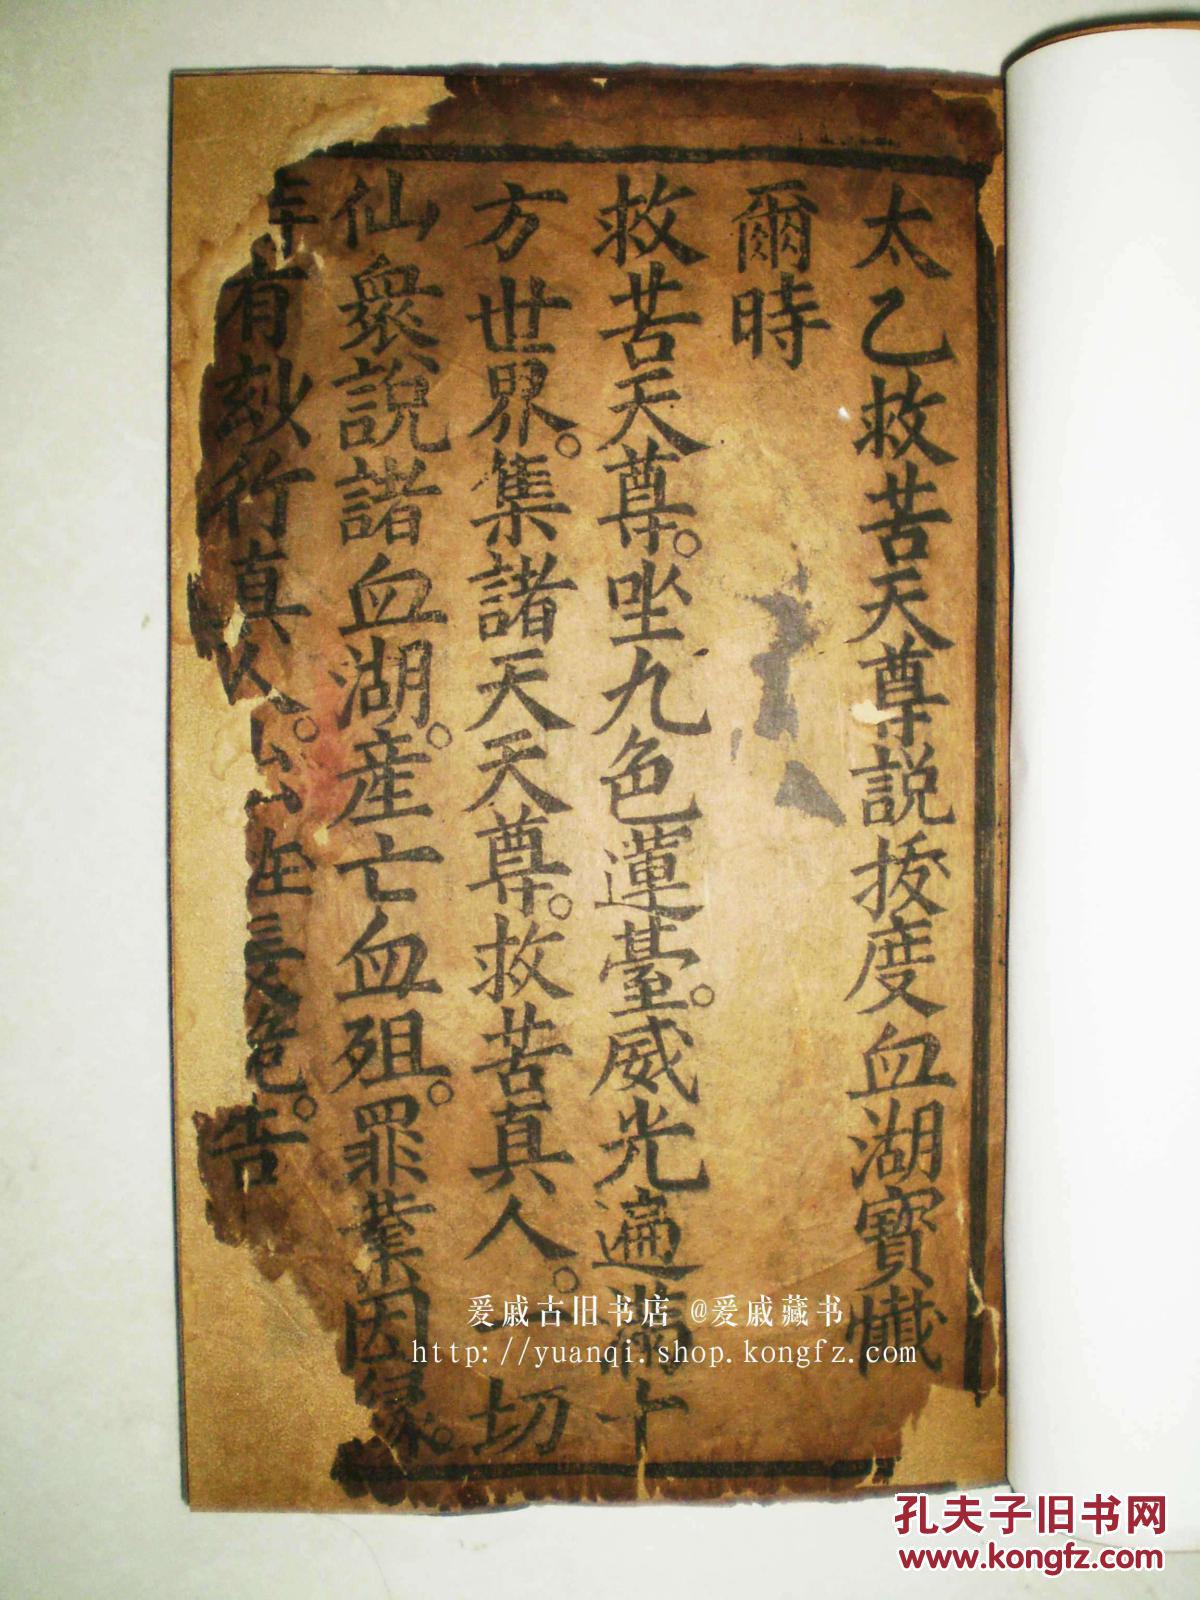 太乙救苦天尊説拔度血湖寶懺
爾時
救苦天尊。坐九色蓮臺。威光遍滿十
方世界。集諸天天尊。救苦真人。一切
仙衆説諸血湖。産亡血殂。罪業因缘。
有玅行真人。告
爰戚古旧书店 @爰戚藏书
http://yuanqi.shop.kongfz.com
孔夫子旧书网
www.kongfz.com